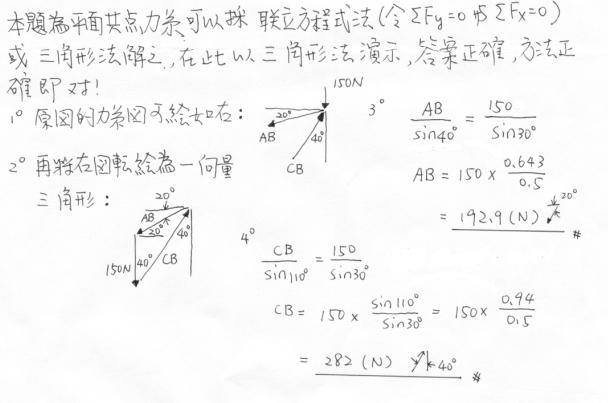 本題為平面共点力系可以採 联立方程式法(令ΣFy=0 与 ΣFx=0)
或 三角形法解之,在此以三角形法演示,答案正確,方法正
確即对!
1° 原図的力系図可绘如右:
150N
20°
40°
AB
CB
2° 再將右図転绘為一向量
三角形:
20°
AB
20°
40°
150N
40°
CB
3° AB/sin40° = 150/sin30°
AB = 150 × 0.643/0.5
= 192.9 (N) 20° #
4° CB/sin110° = 150/sin30°
CB = 150 × sin110°/sin30° = 150 × 0.94/0.5
= 282 (N) 40° #